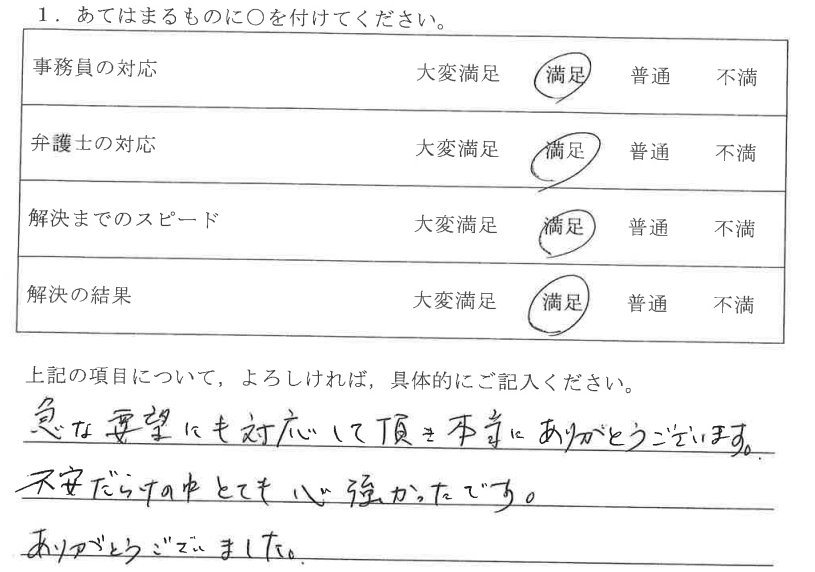 1．あてはまるものに○を付けてください。
事務員の対応 大変満足 満足 普通 不満
弁護士の対応 大変満足 満足 普通 不満
解決までのスピード 大変満足 満足 普通 不満
解決の結果 大変満足 満足 普通 不満
上記の項目について，よろしければ，具体的にご記入ください。
急な要望にも対応して頂き本当にありがとうございます。
不安だらけの中とても心強かったです。
ありがとうございました。